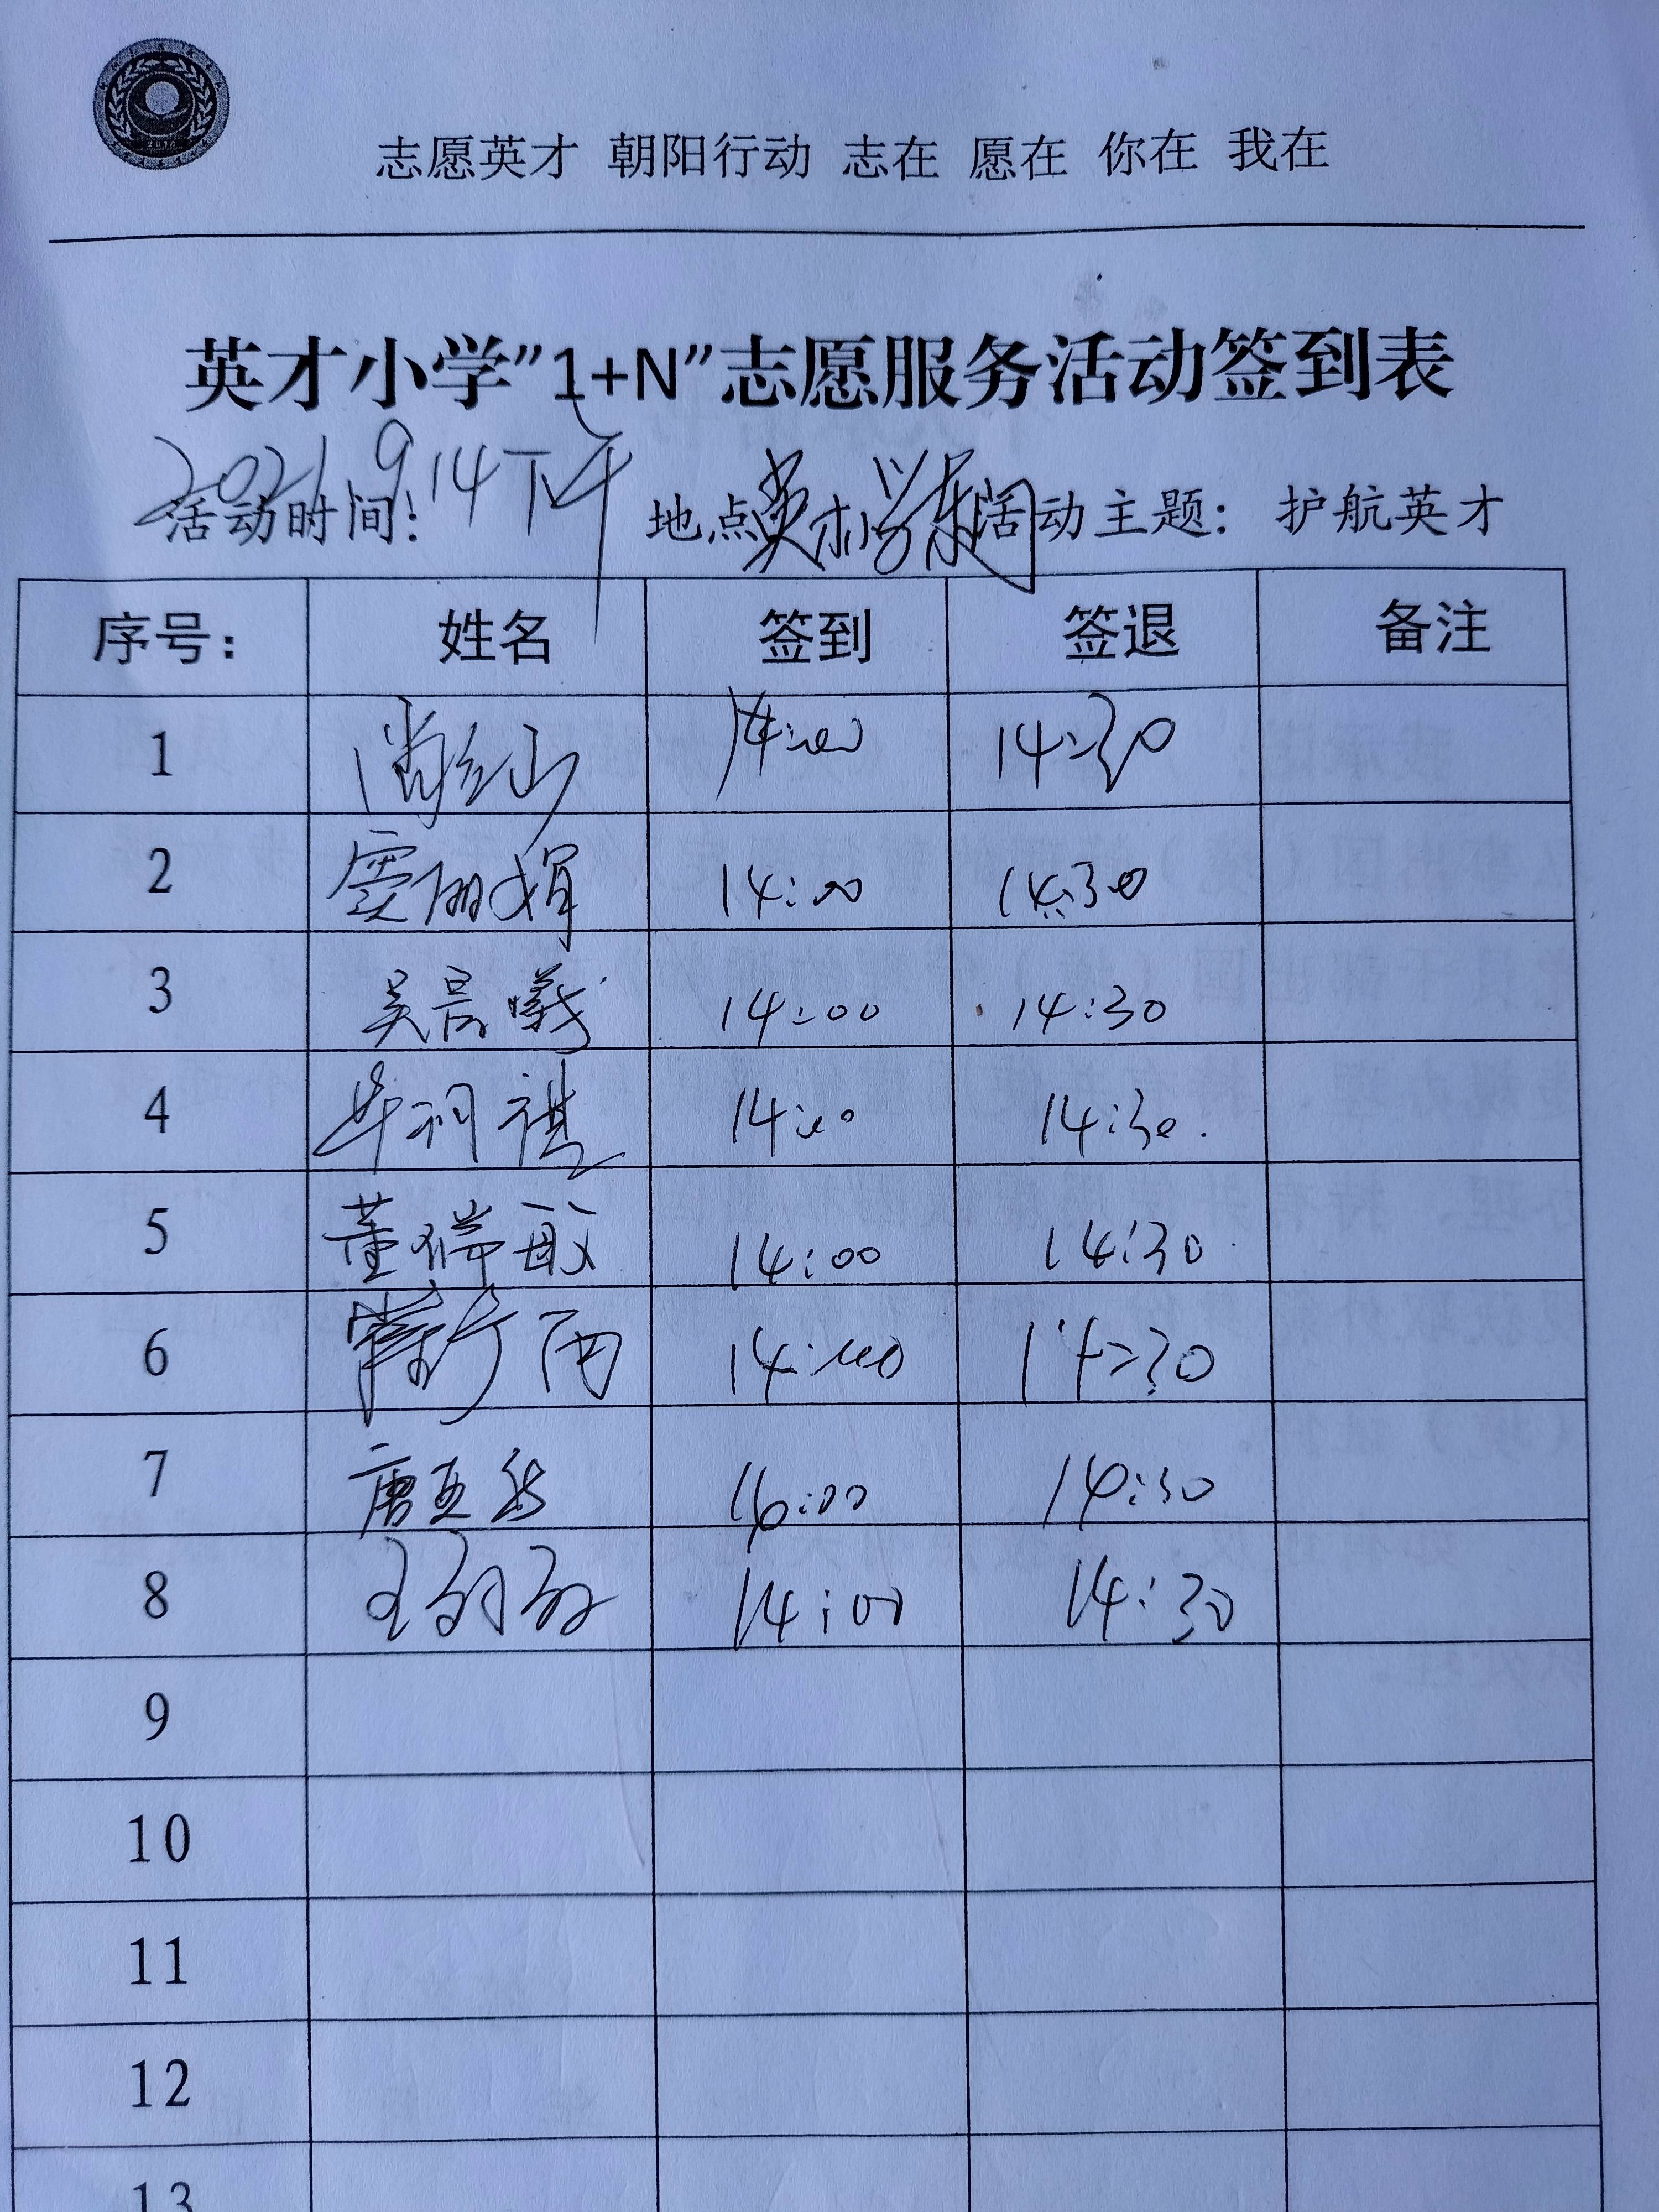 志愿英才 朝阳行动 志在 愿在 你在 我在
英才小学”1+N”志愿服务活动签到表
活动时间: 2021.9.14下午 地点 英才小学东门 活动主题: 护航英才
序号: 姓名 签到 签退 备注
1 14:00 14:30
2 窦丽娟 14:00 14:30
3 吴晨曦 14:00 14:30
4 14:00 14:30.
5 董瑞敏 14:00 14:30
6 常新雨 14:00 14:30
7 16:00 14:30
8 14:00 14:30
9
10
11
12
13